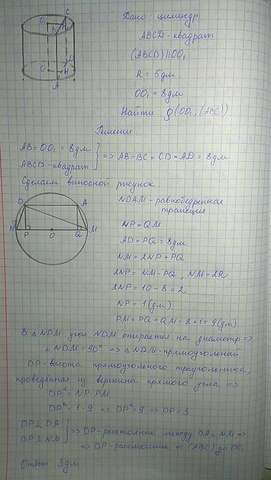 Дано: цилиндр
ABCD-квадрат
(ABCD)||OO₁
R = 5дм
OO₁ = 8дм
Найти ρ(OO₁,(ABC))
Решение
AB=OO₁=8дм
ABCD-квадрат] => AB=BC=CD=AD=8дм
Сделаем выносной рисунок
NDAM-равнобедренная
трапеция
NP=QM
AD=PQ=8дм
NM=2NP+PQ
2NP=NM-PQ, NM=2R
2NP=10-8=2
NP=1(дм)
PM=PQ+QM=8+1=9(дм)
В Δ NDM угол NDM опирается на диаметр =>
∠NDM=90° => Δ NDM-прямоугольный
DP-высота прямоугольного треугольника,
проведенная из вершины прямого угла =>
DP²=NP·PM
DP²=1·9 => DP²=9 => DP=3
=> DP-расстояние между DA и NM =>
=> DP-расстояние от (ABC) до OO₁
Ответ: 3дм